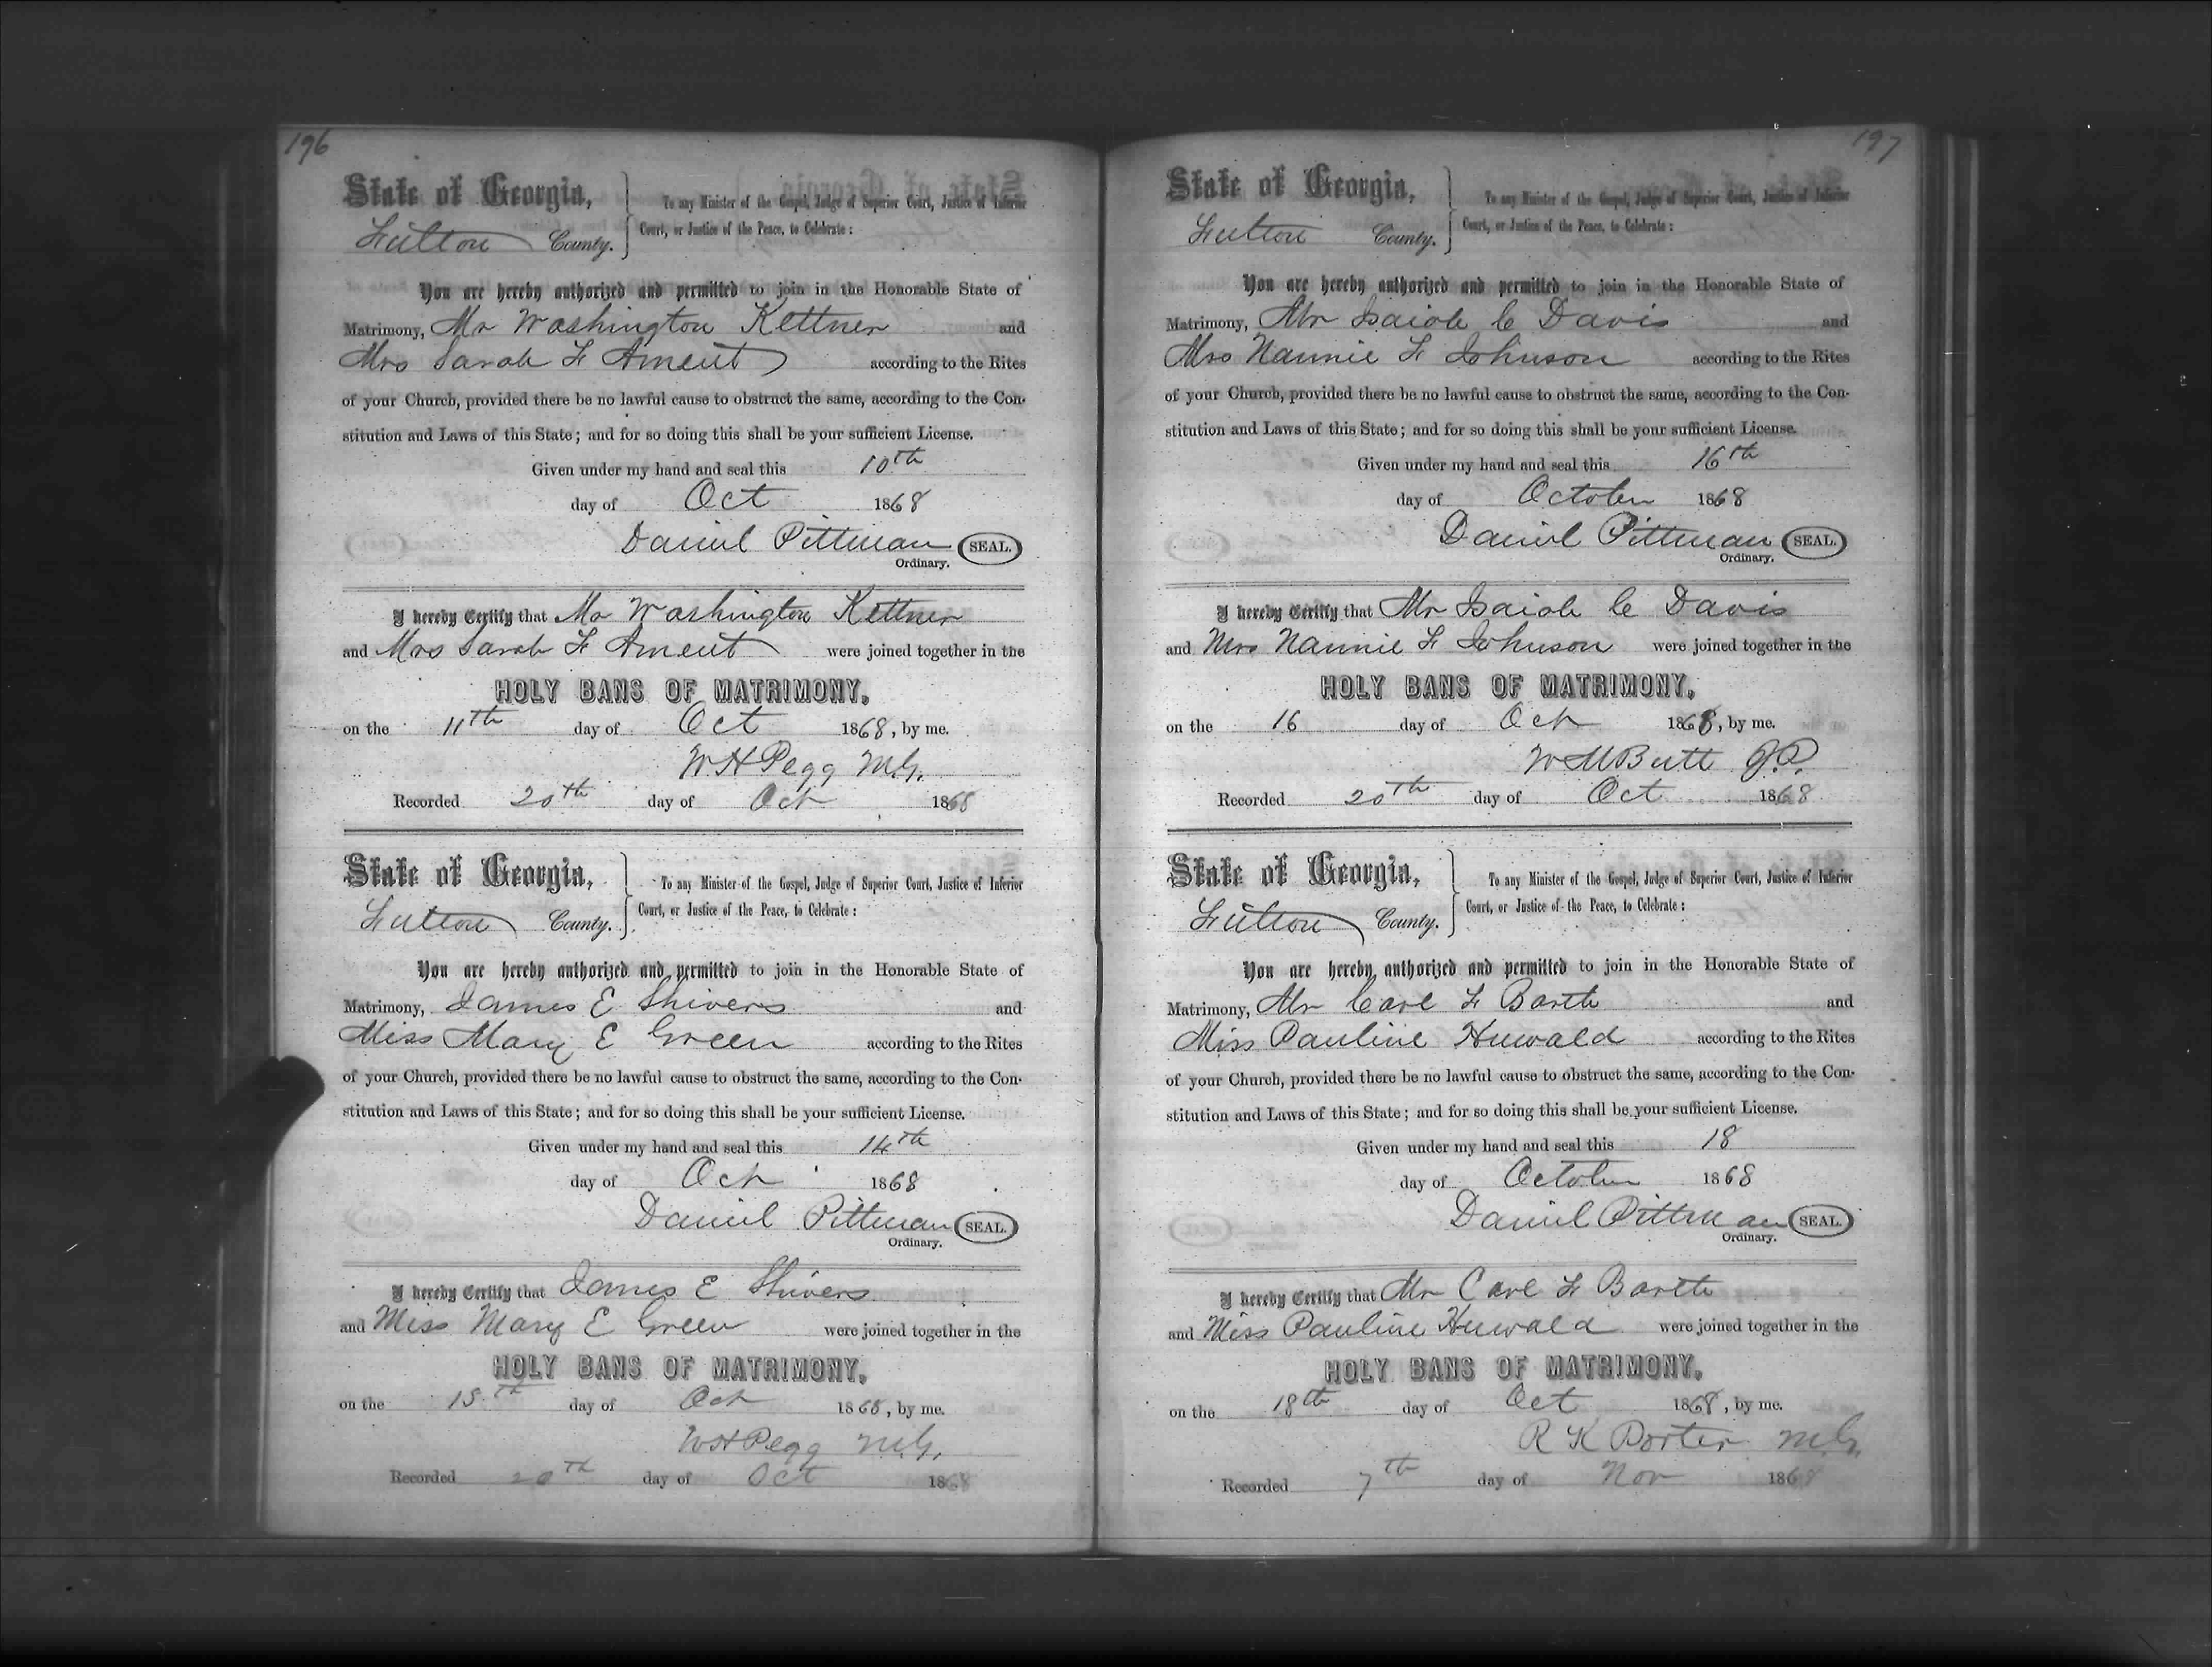 196
State of Georgia,
Fulton County.
To any Minister of the Gospel, Judge of Superior Court, Justice of Inferior
Court, or Justice of the Peace, to Celebrate:
You are hereby authorized and permitted to join in the Honorable State of
Matrimony, Mr Washington Kettner and
Mrs Sarah F Ament according to the Rites
of your Church, provided there be no lawful cause to obstruct the same, according to the Con-
stitution and Laws of this State; and for so doing this shall be your sufficient License.
Given under my hand and seal this 10th
day of Oct 1868
Daniel Pittman SEAL.
Ordinary.
I hereby Certify that Mr Washington Kettner
and Mrs Sarah F Ament were joined together in the
HOLY BANS OF MATRIMONY,
on the 11th day of Oct 1868, by me.
W H Pegg M.G.
Recorded 20th day of Oct 1868
State of Georgia,
Fulton County.
To any Minister of the Gospel, Judge of Superior Court, Justice of Inferior
Court, or Justice of the Peace, to Celebrate:
You are hereby authorized and permitted to join in the Honorable State of
Matrimony, James E Shivers and
Miss Mary E Green according to the Rites
of your Church, provided there be no lawful cause to obstruct the same, according to the Con-
stitution and Laws of this State; and for so doing this shall be your sufficient License.
Given under my hand and seal this 14th
day of Oct 1868
Daniel Pittman SEAL.
Ordinary.
I hereby Certify that James E Shivers
and Miss Mary E Green were joined together in the
HOLY BANS OF MATRIMONY,
on the 15th day of Oct 1868, by me.
W H Pegg M.G.
Recorded 20th day of Oct 1868
197
State of Georgia,
Fulton County.
To any Minister of the Gospel, Judge of Superior Court, Justice of Inferior
Court, or Justice of the Peace, to Celebrate:
You are hereby authorized and permitted to join in the Honorable State of
Matrimony, Mr Isaiah C Davis and
Mrs Nannie F Johnson according to the Rites
of your Church, provided there be no lawful cause to obstruct the same, according to the Con-
stitution and Laws of this State; and for so doing this shall be your sufficient License.
Given under my hand and seal this 16th
day of October 1868
Daniel Pittman SEAL.
Ordinary.
I hereby Certify that Mr Isaiah C Davis
and Mrs Nannie F Johnson were joined together in the
HOLY BANS OF MATRIMONY,
on the 16 day of Oct 1868, by me.
W M Butt J.P.
Recorded 20th day of Oct 1868
State of Georgia,
Fulton County.
To any Minister of the Gospel, Judge of Superior Court, Justice of Inferior
Court, or Justice of the Peace, to Celebrate:
You are hereby authorized and permitted to join in the Honorable State of
Matrimony, Mr Carl F Barth and
Miss Pauline Huwald according to the Rites
of your Church, provided there be no lawful cause to obstruct the same, according to the Con-
stitution and Laws of this State; and for so doing this shall be your sufficient License.
Given under my hand and seal this 18
day of October 1868
Daniel Pittman SEAL.
Ordinary.
I hereby Certify that Mr Carl F Barth
and Miss Pauline Huwald were joined together in the
HOLY BANS OF MATRIMONY,
on the 18th day of Oct 1868, by me.
R K Porter M.G.
Recorded 7th day of Nov 1868